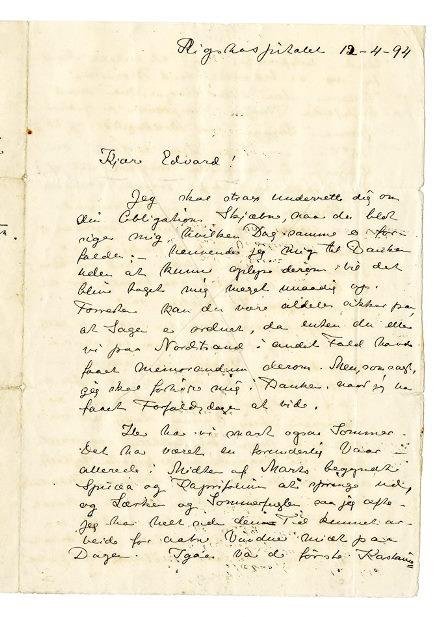 Rigshospitalet 12-4-94
Kjære Edvard!
Jeg skal strax underrette dig om
din Obligations Skjæbne, naar du blot
siger mig, hvilken Dag samme er for-
falden; – henvender jeg mig til Banken
uden at kunne oplyse derom vil det
blive taget mig meget unaadig op.
Forresten kan du være aldeles sikker paa,
at Sagen er ordnet, da enten du eller
vi paa Nordstrand i andet Fald havde
faaet Memorandum derom. Men, som sagt,
jeg skal forhøre mig i Banken, naar jeg har
faaet Forfaldsdagen at vide.
Her har vi snart ogsaa Sommer.
Det har været en forunderlig Vaar –
allerede i Midten af Marts begyndte
Spiræa og Kaprifolium at springe ud,
og Lærker og Sommerfugle saa jeg ofte.
Jeg har helt siden den Tid kunnet ar-
beide for aabne Vinduer midt paa
Dagen. Igaar var de første Kastanie